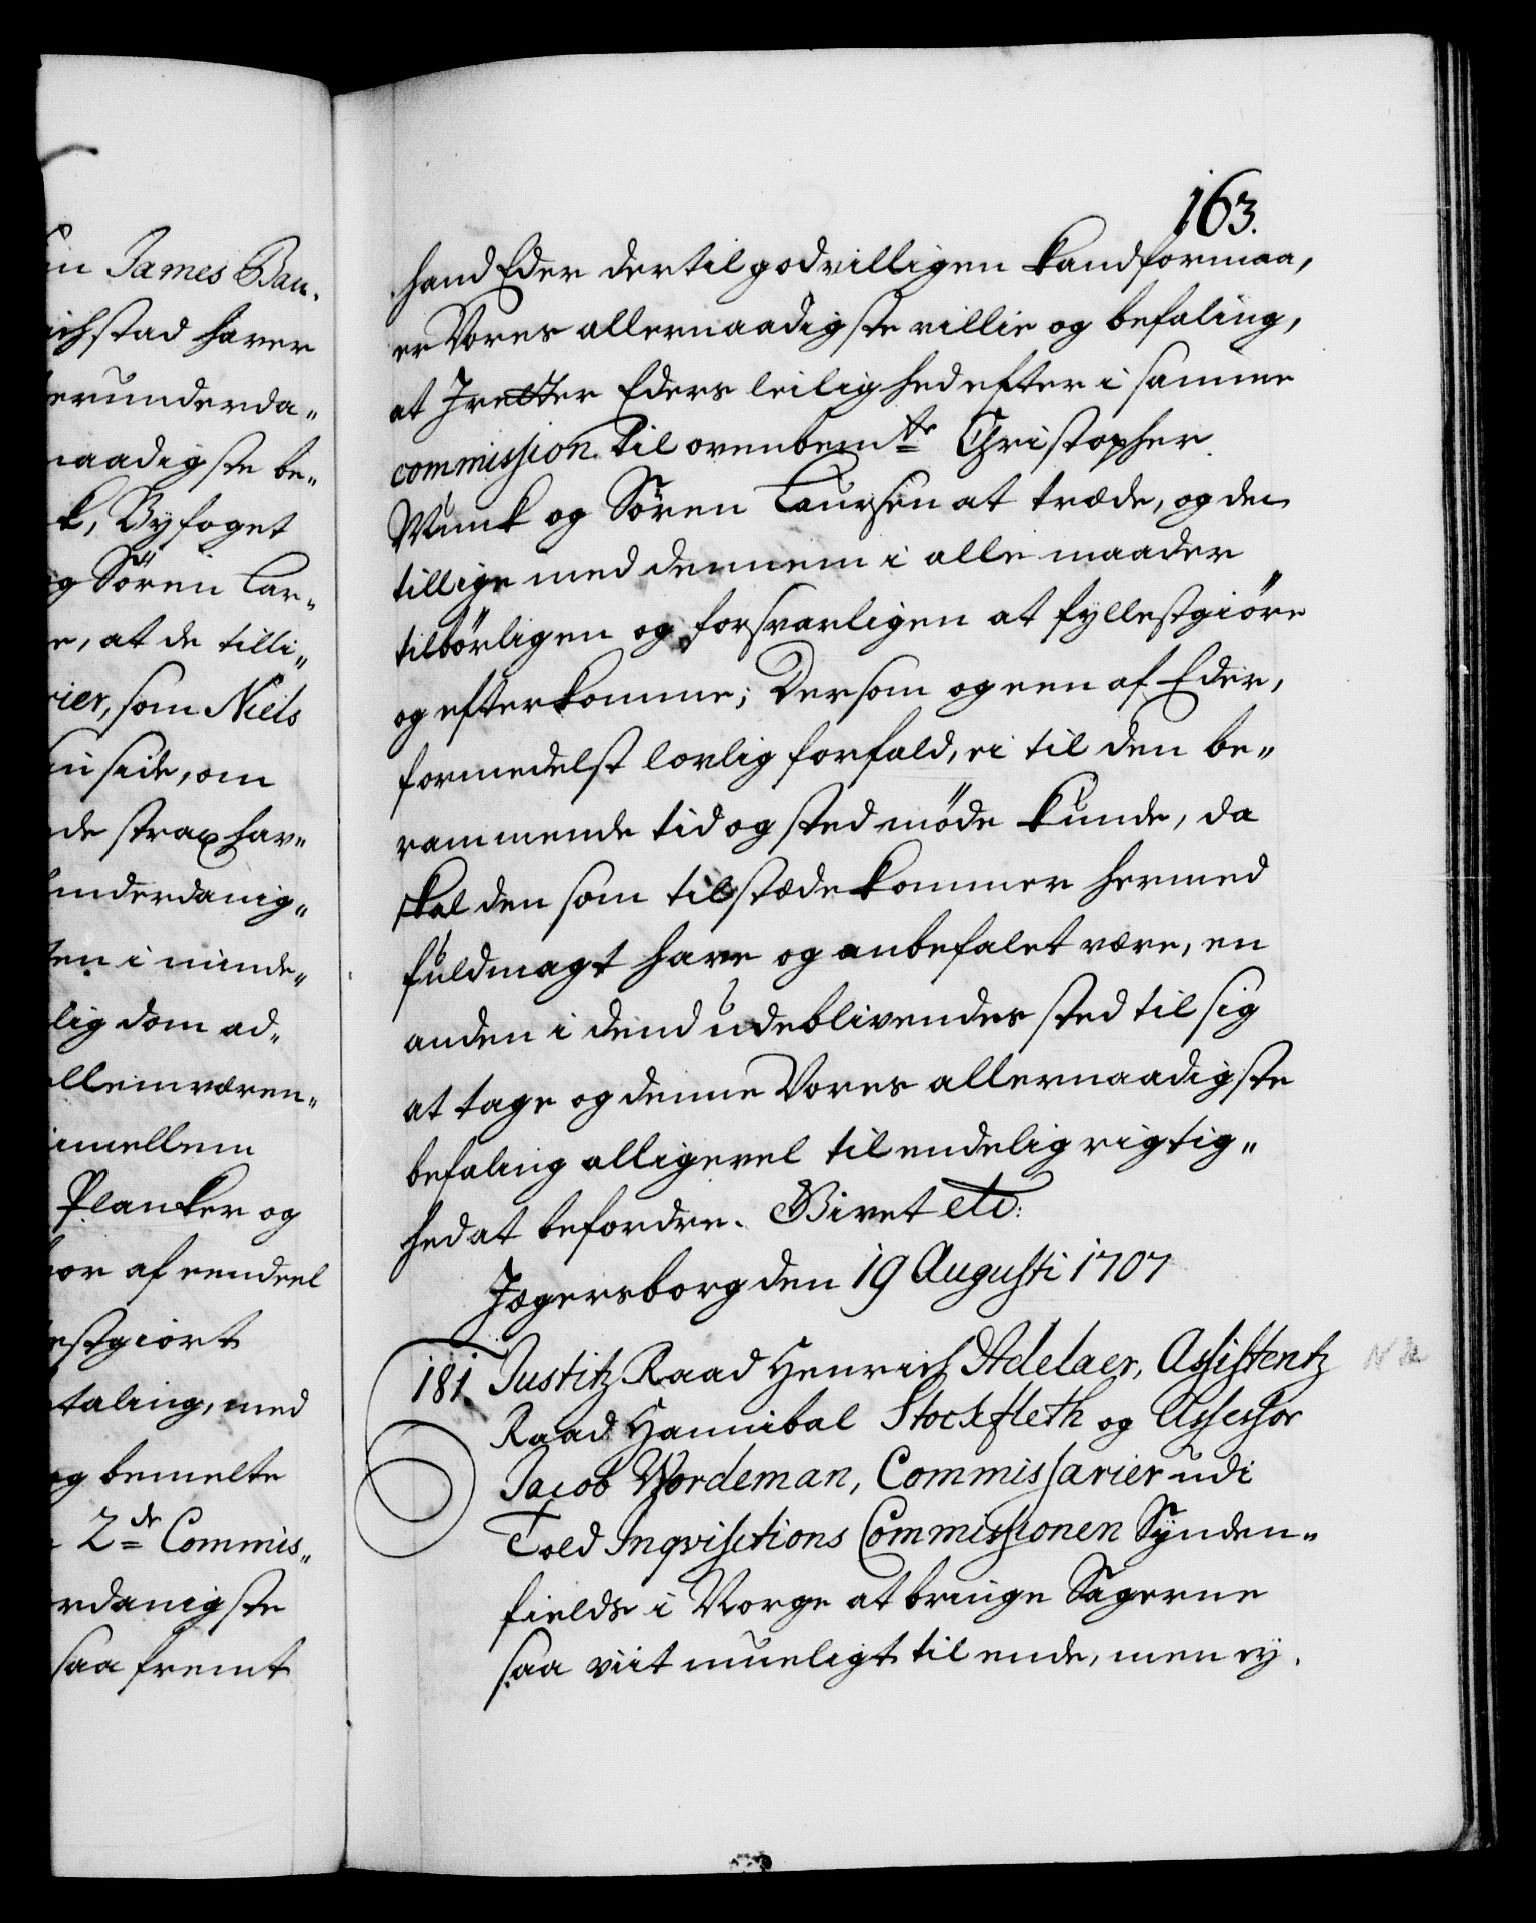 in James Bau-
ichstad haver
erunderda-
naadigste be-
k, Byfoget
g Sören Lar-
e, at de tilli-
rier, som Niels
in side, om
de strax hav-
underdanig-
ten i minde-
lig dom ad-
llemværen-
imellem
Planker og
or af eendeel
estgiort
taling, med
og bemelte
2de Commis-
rdanigste
saa fremt
163.
hand Eder dertil godvilligen kand formaa,
er Vores allernaadigste villie og befaling,
at I retter Eders leilighed efter i samme
commission til ovenbemte Christopher
Munk og Sören Laursen at træde, og den
tillige med dennem i alle maader
tilbörligen og forsvarligen at fyllestgiöre
og efterkomme; Dersom og een af Eder,
formedelst lovlig forfald, ei til den be-
rammende tid og sted möde kunde, da
skal den som tilstæde kommer hermed
fuldmagt have og anbefalet være, en
anden i dend udeblivendes sted til sig
at tage og denne Vores allernaadigste
befaling alligevel til endelig rigtig-
hed at befordre. Givet etc:
Jægersborg den 19 Augusti 1707
181. Justitz Raad Henrich Adelaer, Assistentz
Raad Hannibal Stockfleth og Assessor
Jacob Wordeman, Commissarier udi
Told Inqvisitions Commissionen Synden-
fields i Norge at bringe Sagerne
saa viit mueligt til ende, men ey